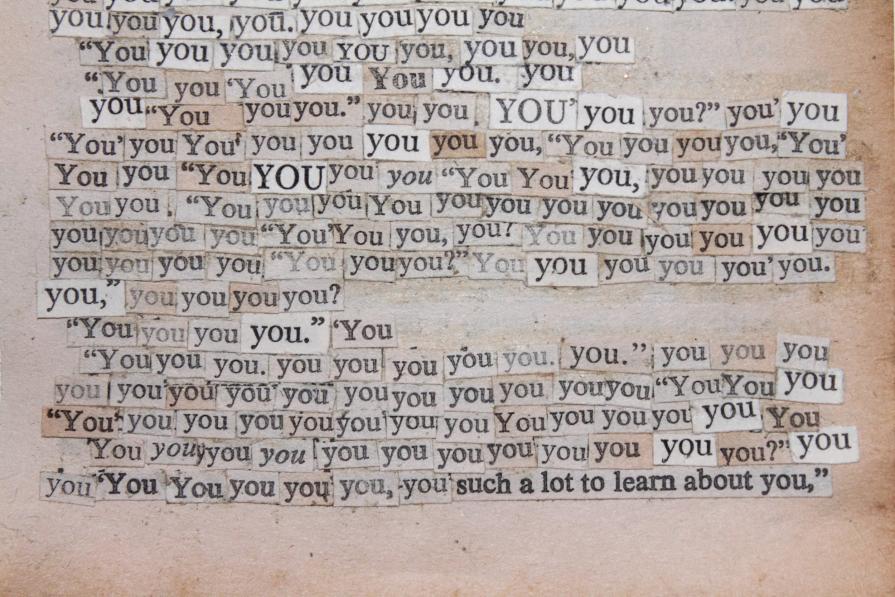 you you you, you. you you you you
“You you you you YOU you, you you, you
“You you ‘You you You you. you
you “You you you.” you you YOU’ you you?” you’ you
“You’ you You‘ you you you you you, “You you you you, “You’
You you “You YOU you you “You You you, you you you you
You you “You you you You you you you you you you you you
you you you you “You’ You you, you? You you you you you you
you you you you “You you you?” You you you you you’ you.
you,” you you you you?
“You you you you.” ‘You
“You you you. you you you you you. you.” you you you
you you you you you you you you you you you “You You you
“You’ you you you you you you you you You you you you you You
You you, you you you you you you you you you you you?” you
you ‘You You you you you, you such a lot to learn about you,”